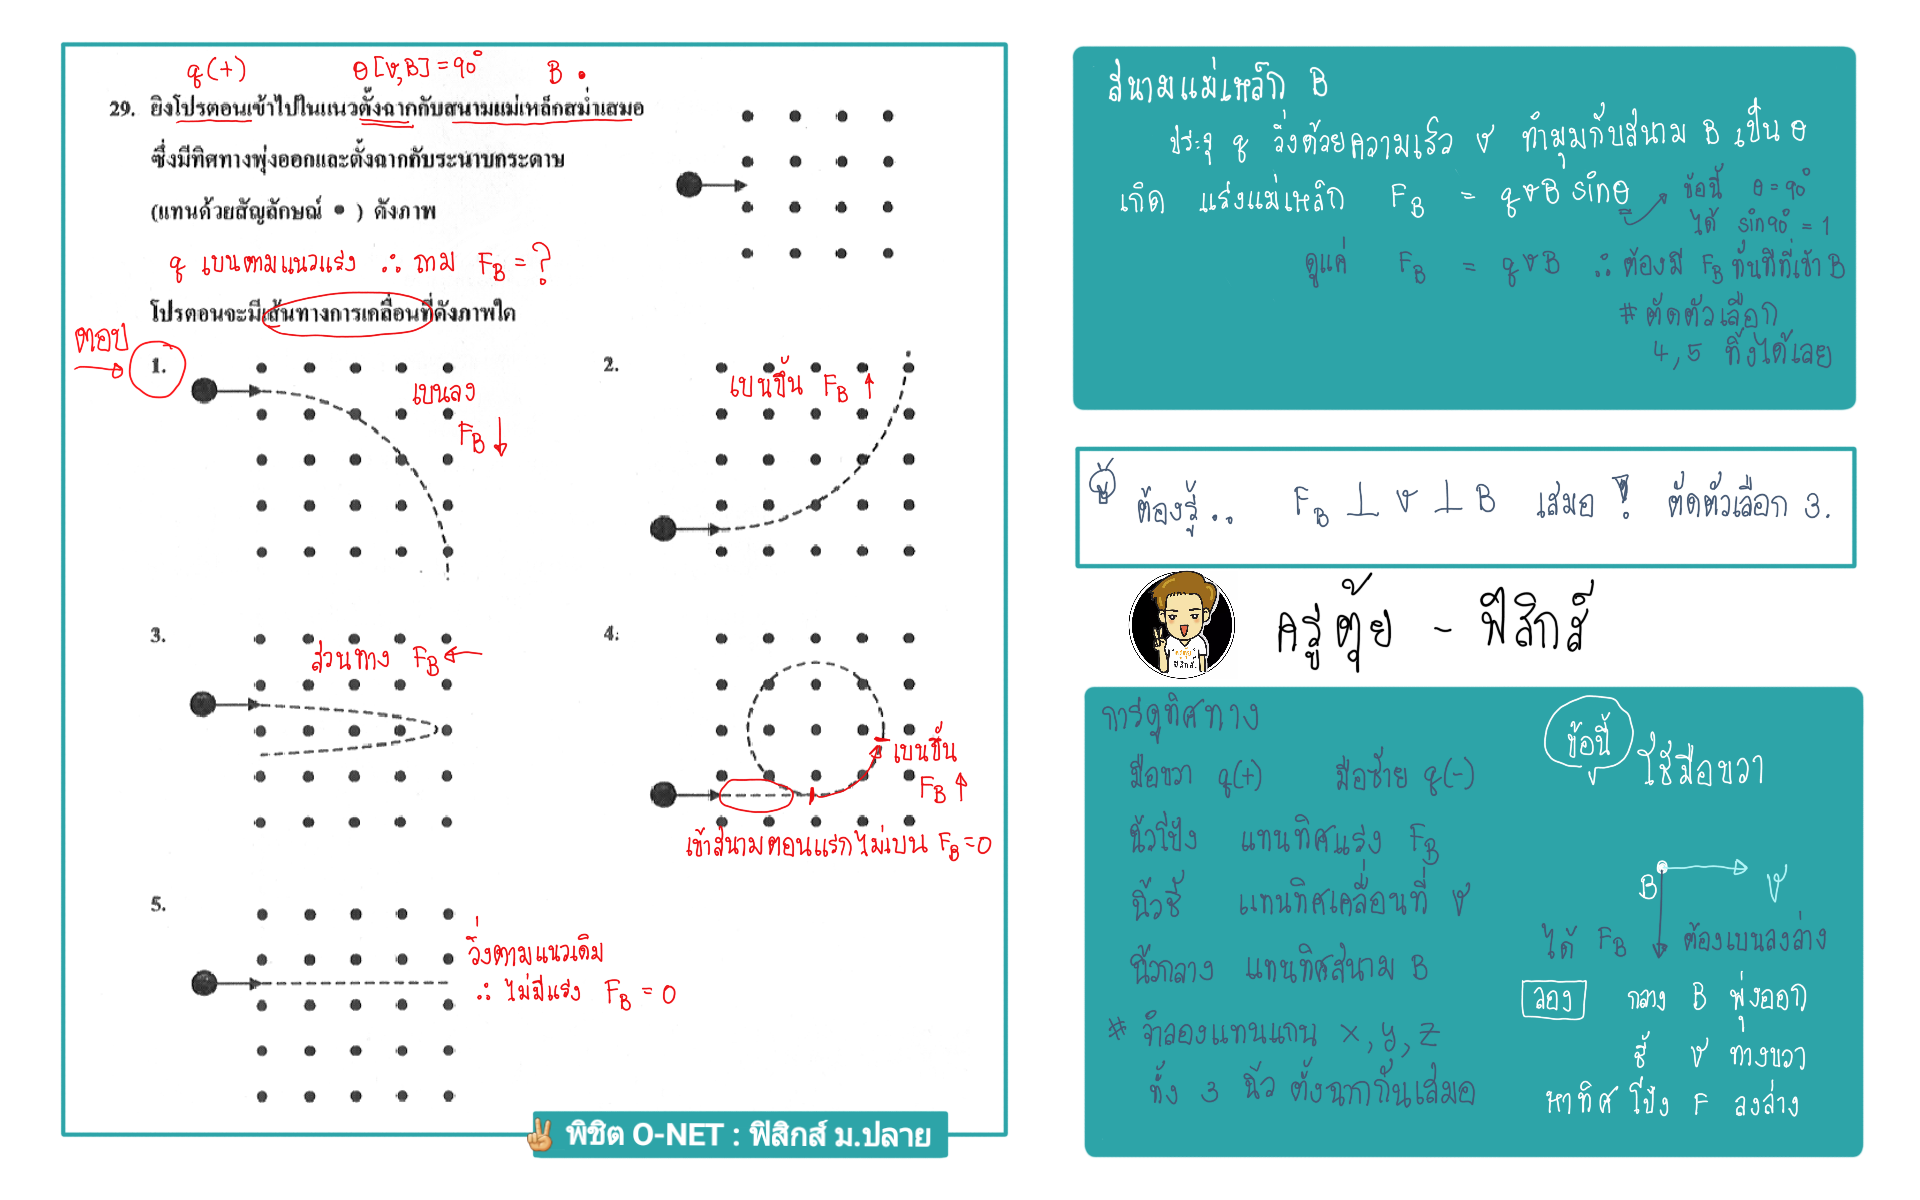 q(+) θ[v,B]=90° B •
29. ยิงโปรตอนเข้าไปในแนวตั้งฉากกับสนามแม่เหล็กสม่ำเสมอ
ซึ่งมีทิศทางพุ่งออกและตั้งฉากกับระนาบกระดาษ
(แทนด้วยสัญลักษณ์ • ) ดังภาพ
q เบนตามแนวแรง ∴ ถาม F_B = ?
โปรตอนจะมีเส้นทางการเคลื่อนที่ดังภาพใด
ตอบ →
1.
เบนลง
F_B ↓
2.
เบนขึ้น F_B ↑
3.
สวนทาง F_B ←
4.
เบนขึ้น
F_B ↑
เข้าสนามตอนแรกไม่เบน F_B = 0
5.
วิ่งตามแนวเดิม
∴ ไม่มีแรง F_B = 0
✌ พิชิต O-NET : ฟิสิกส์ ม.ปลาย
สนามแม่เหล็ก B
ประจุ q วิ่งด้วยความเร็ว v ทำมุมกับสนาม B เป็น θ
เกิด แรงแม่เหล็ก F_B = qvB sinθ
ข้อนี้ θ = 90°
ได้ sin90° = 1
ดูแค่ F_B = qvB ∴ ต้องมี F_B ทันทีที่เข้า B
# ตัดตัวเลือก
4, 5 ทิ้งได้เลย
ต้องรู้.. F_B ⊥ v ⊥ B เสมอ ! ตัดตัวเลือก 3.
ครูตุ้ย - ฟิสิกส์
การดูทิศทาง
มือขวา q(+) มือซ้าย q(-)
นิ้วโป้ง แทนทิศแรง F_B
นิ้วชี้ แทนทิศเคลื่อนที่ v
นิ้วกลาง แทนทิศสนาม B
# จำลองแทนแกน x, y, z
ทั้ง 3 นิ้ว ตั้งฉากกันเสมอ
ข้อนี้ ใช้มือขวา
B v
ได้ F_B ต้องเบนลงล่าง
ลอง กลาง B พุ่งออก
ชี้ v ทางขวา
หาทิศ โป้ง F ลงล่าง